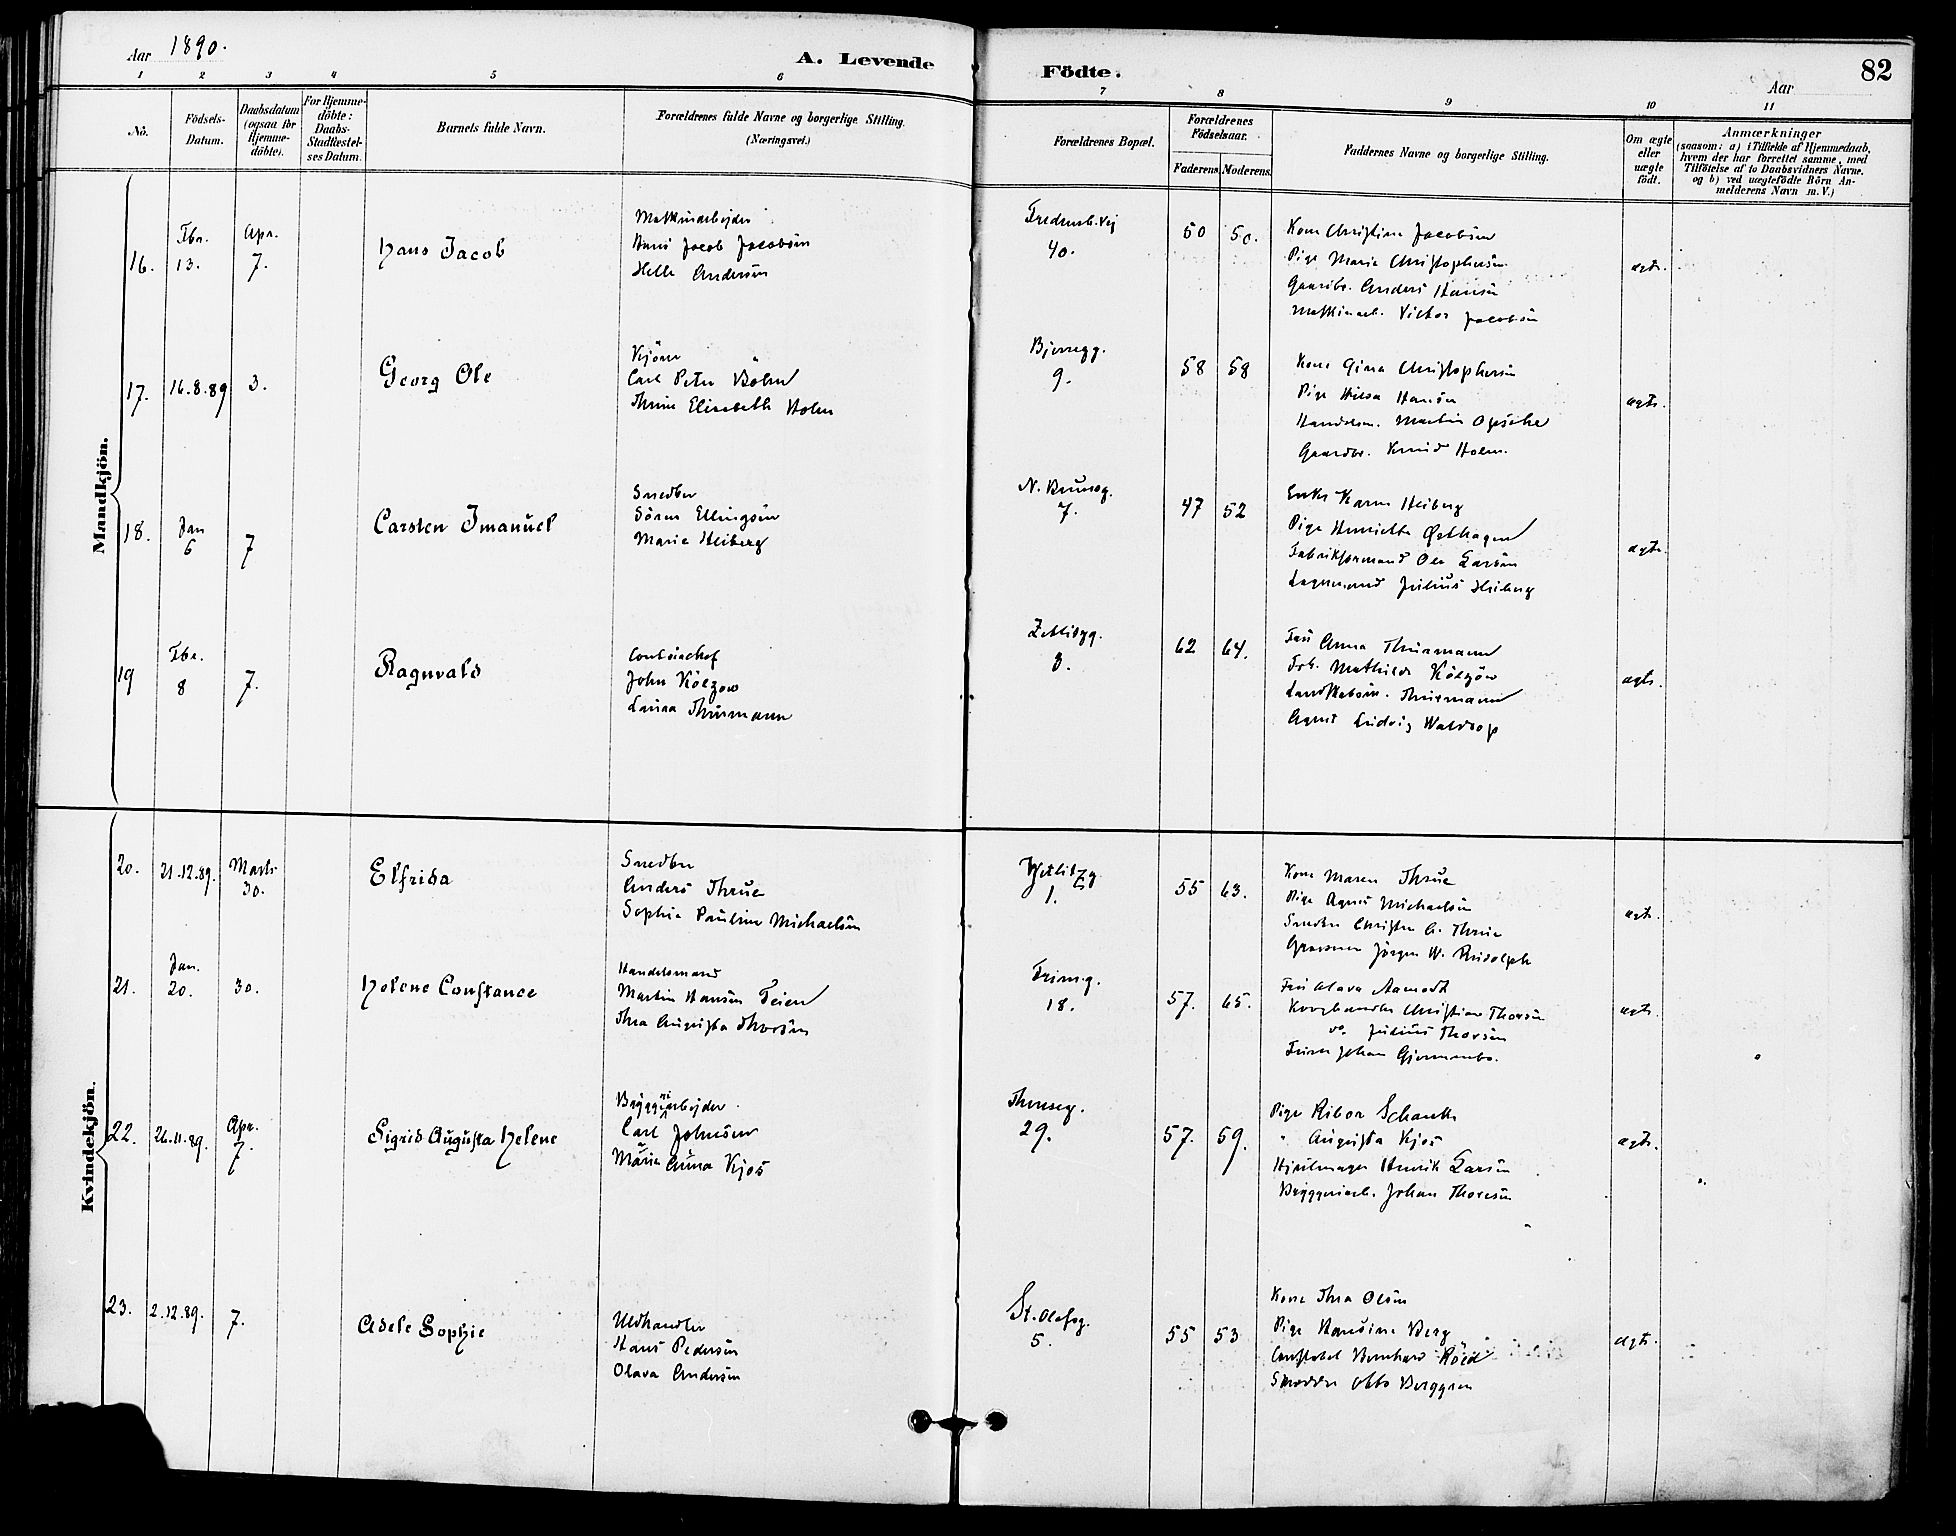 Aar 1890.
A. Levende
Födte.
Aar
82
1 2 3 4 5 6 7 8 9 10 11
No.
Födsels-
Datum.
Daabsdatum
(ogsaa for
Hjemme-
döbte).
For Hjemme-
döbte:
Daabs-
Stadfæstel-
ses Datum.
Barnets fulde Navn.
Forældrenes fulde Navne og borgerlige Stilling.
(Næringsvei.)
Forældrenes Bopæl.
Forældrenes
Födselsaar.
Faderens. Moderens.
Faddernes Navne og borgerlige Stilling.
Om ægte
eller
uægte
födt.
Anmærkninger
(saasom: a) i Tilfælde af Hjemmedaab,
hvem der har forrettet samme, med
Tilföielse af to Daabsvidners Navne,
og b) ved uægtefödte Börn An-
melderens Navn m. V.)
Mandkjön.
16.
Fbr.
13.
Apr.
7.
Hans Jacob
Hans Jacob Jacobsen
Helle Andersen
Fredensb.vej
40.
50 50.
Kone Christine Jacobsen
Pige Marie Christophersen
Gaardbr. Anders Hansen
Maskinarb. Victor Jacobsen
ægte.
17.
16.8.89
3.
Georg Ole
Carl Peter Böhn
Thrine Elisabeth Holm
Bjerregg.
9.
58 58
Kone Gina Christophersen
Pige Hilda Hansen
Handelsm. Martin
Gaardbr. Knud Holm.
ægte.
18.
Jan
6
7
Carsten Imanuel
Snedker
Sören Ellingsen
Marie Heiberg
N. Brunsg.
7.
47 52
Enke Karen Heiberg
Pige Henriette Østhagen
Fabrikformand Ole Larsen
Julius Heiberg
ægte.
19
Fbr.
8
7.
Ragnvald
Contoirchef
John Kölzow
Laura Thurmann
Zetlitzg.
3.
62 64.
Fru Anna Thurmann
Frk. Mathilde Kölzow
Thurmann
Agent Ludvig
ægte.
Kvindekjön.
20.
21.12.89.
Marts
30.
Elfrida
Snedker
Anders Thrue
Sophie Pauline Michaelsen
Zetlitzg.
1.
55 63.
Kone Maren Thrue
Pige Agnes Michaelsen
Snedker Christen A. Thrue
Jörgen W. Rudolph
ægte.
21.
Jan.
20.
30.
Helene Constance
Handelsmand
Martin Hansen Teien
Thea Augusta Thorsen
18.
57. 65.
Fru Olava Aamodt
Christian Thorsen
do. Julius Thorsen
Johan
ægte.
22.
26.11.89.
Apr.
7.
Sigrid Augusta Helene
Bryggeriarbejder
Carl Johnsen
Marie Anna Kjos
Thereseg.
29.
57. 59.
Pige
" Augusta Kjos
Hjulmager Henrik Larsen
Bryggeriarb. Johan Thoresen
ægte.
23.
2.12.89.
7.
Adele Sophie
Uldhandler
Hans Pedersen
Olava Andersen
St. Olafsg.
5.
55 53
Kone Thea Olsen
Pige Hansine Berg
Constabel Bernhard Röed
Skrædder Otto Berggren
ægte.